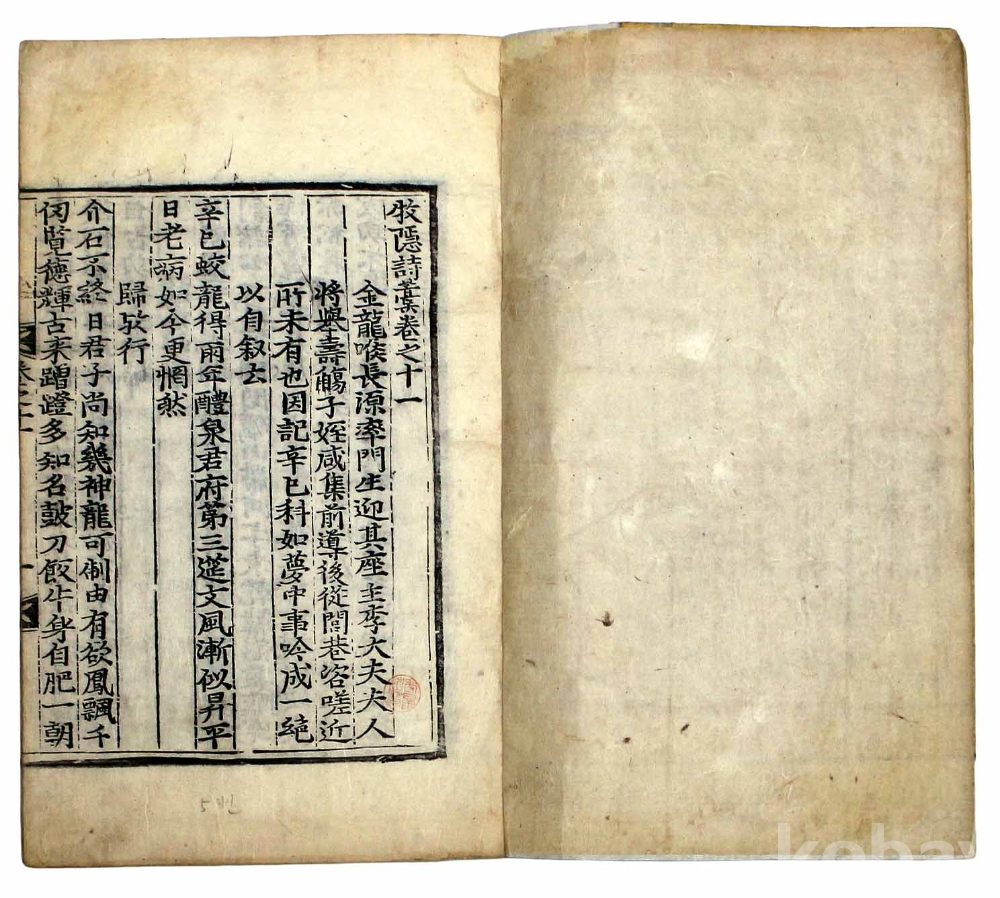 牧隱詩藁卷之十一
金龍喉長源率門生迎其座主李大夫夫人
將擧壽觴子姪咸集前導後從閭巷咨嗟近
所未有也因記辛巳科如夢中事吟成一絶
以自叙云
辛巳蛟龍得雨年醴泉君府第三筵文風漸似昇平
日老病如今更惘然
歸 行
介石不終日君子尚知幾神龍可制由有欲鳳飄千
仞覽德輝古来蹭蹬多知名鼓刀飯牛身自肥一朝
5번
kobay